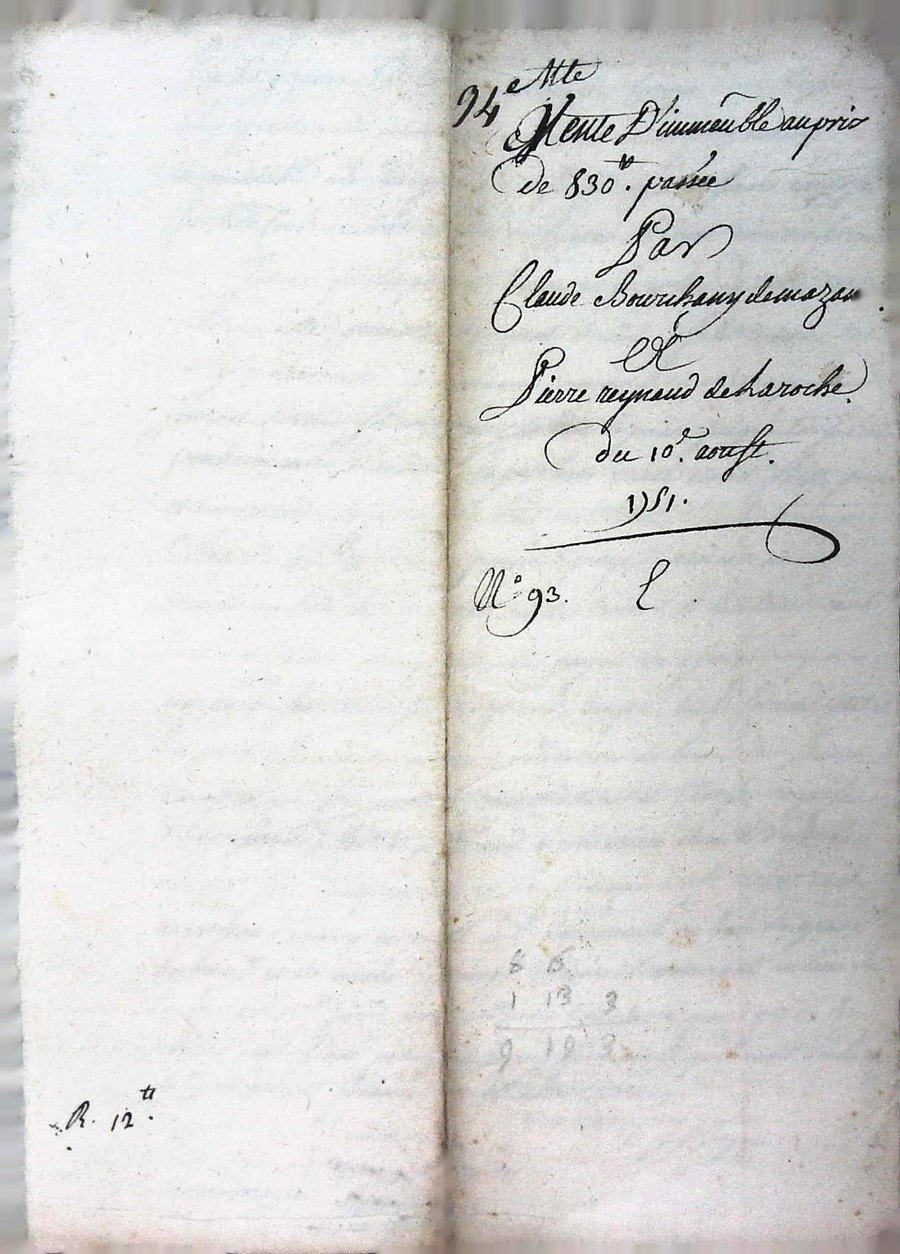 94e Mte
Vente D'immeuble au prix
de 830tt. passée
Par
Claude Bourchany de mazan.
Et
Pierre reynaud de Laroche.
du 10e. aoust.
1751.
N.o 93. L.
8 6
1 13 3
9 19 3
R. 12tt.